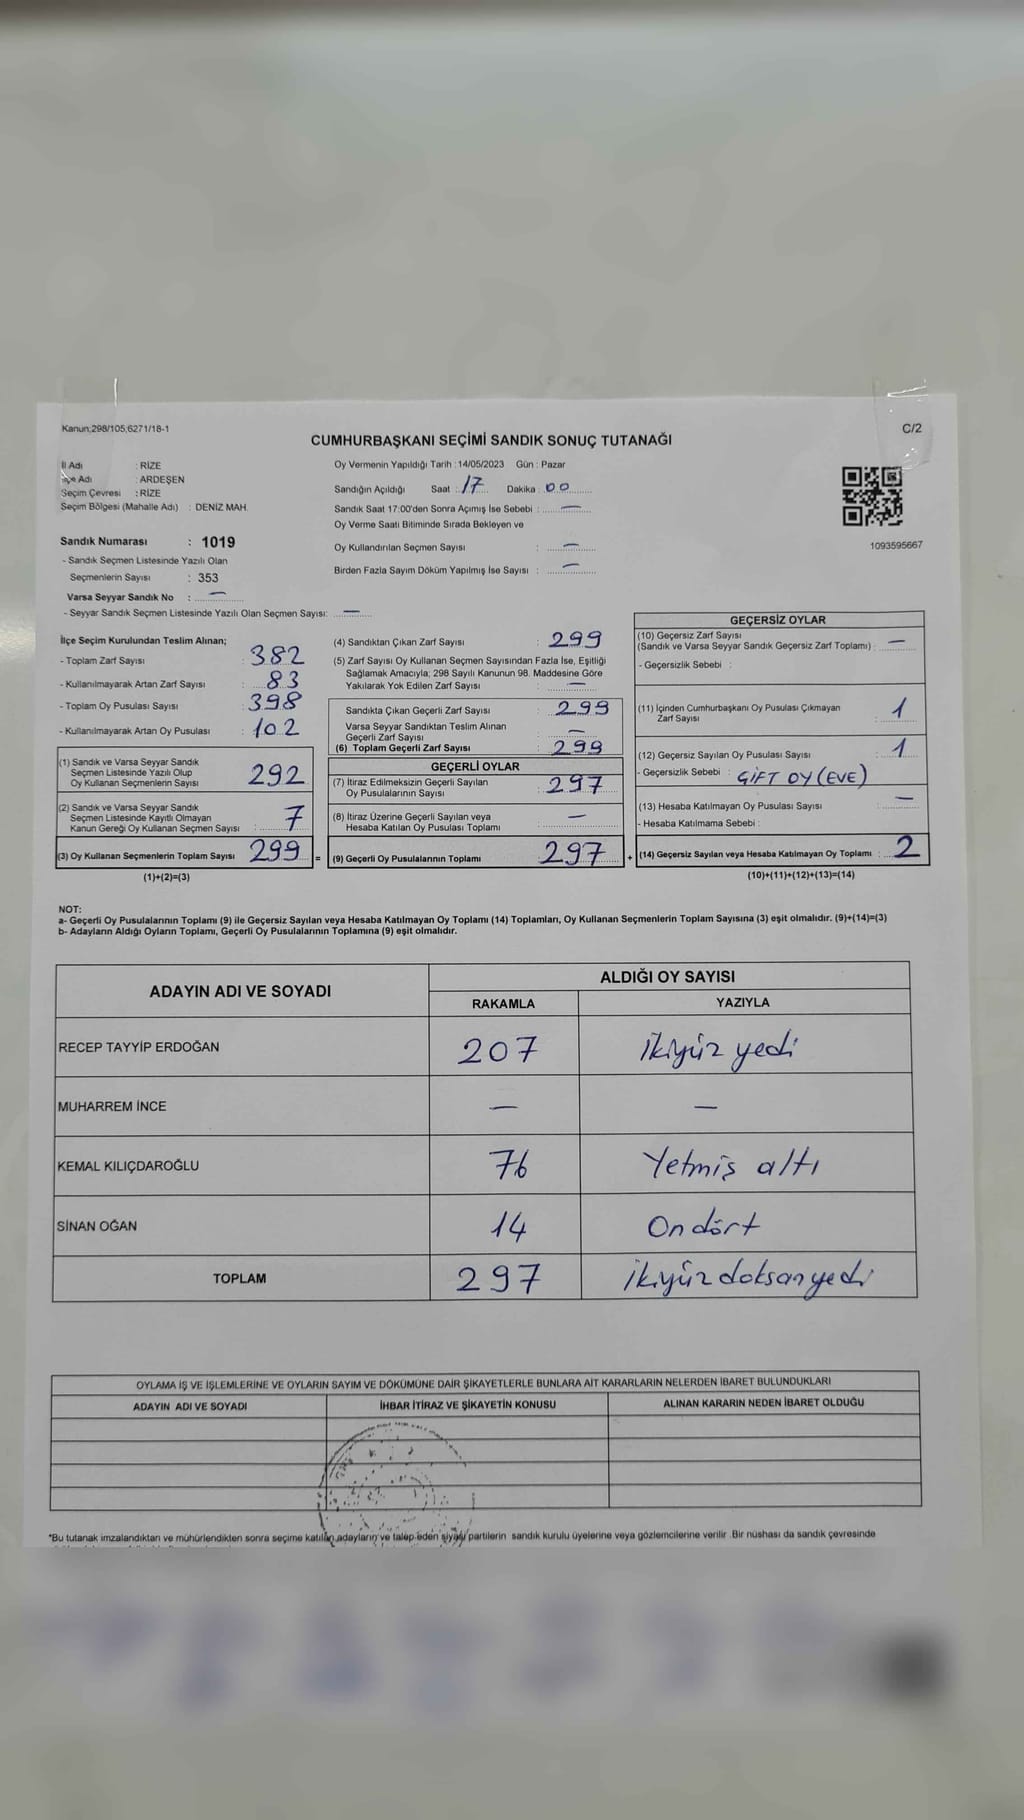 Kanun;298/105,6271/18-1
C/2
CUMHURBAŞKANI SEÇİMİ SANDIK SONUÇ TUTANAĞI
İl Adı : RİZE
Adı : ARDEŞEN
Seçim Çevresi : RİZE
Seçim Bölgesi (Mahalle Adı) : DENİZ MAH.
Oy Vermenin Yapıldığı Tarih : 14/05/2023 Gün : Pazar
Sandığın Açıldığı Saat : 17 Dakika : 00
Sandık Saat 17:00'den Sonra Açımış İse Sebebi : —
Oy Verme Saati Bitiminde Sırada Bekleyen ve
Oy Kullandırılan Seçmen Sayısı : —
Birden Fazla Sayım Döküm Yapılmış İse Sayısı : —
1093595667
Sandık Numarası : 1019
- Sandık Seçmen Listesinde Yazılı Olan
Seçmenlerin Sayısı : 353
Varsa Seyyar Sandık No : —
- Seyyar Sandık Seçmen Listesinde Yazılı Olan Seçmen Sayısı: —
İlçe Seçim Kurulundan Teslim Alınan;
- Toplam Zarf Sayısı : 382
- Kullanılmayarak Artan Zarf Sayısı : 83
- Toplam Oy Pusulası Sayısı : 398
- Kullanılmayarak Artan Oy Pusulası : 102
(1) Sandık ve Varsa Seyyar Sandık
Seçmen Listesinde Yazılı Olup
Oy Kullanan Seçmenlerin Sayısı 292
(2) Sandık ve Varsa Seyyar Sandık
Seçmen Listesinde Kayıtlı Olmayan
Kanun Gereği Oy Kullanan Seçmen Sayısı : 7
(3) Oy Kullanan Seçmenlerin Toplam Sayısı 299 =
(1)+(2)=(3)
(4) Sandıktan Çıkan Zarf Sayısı : 299
(5) Zarf Sayısı Oy Kullanan Seçmen Sayısından Fazla İse, Eşitliği
Sağlamak Amacıyla; 298 Sayılı Kanunun 98. Maddesine Göre
Yakılarak Yok Edilen Zarf Sayısı : —
Sandıkta Çıkan Geçerli Zarf Sayısı : 299
Varsa Seyyar Sandıktan Teslim Alınan
Geçerli Zarf Sayısı : —
(6) Toplam Geçerli Zarf Sayısı : 299
GEÇERLİ OYLAR
(7) İtiraz Edilmeksizin Geçerli Sayılan
Oy Pusulalarının Sayısı : 297
(8) İtiraz Üzerine Geçerli Sayılan veya
Hesaba Katılan Oy Pusulası Toplamı : —
(9) Geçerli Oy Pusulalarının Toplamı 297 +
GEÇERSİZ OYLAR
(10) Geçersiz Zarf Sayısı
(Sandık ve Varsa Seyyar Sandık Geçersiz Zarf Toplamı) : —
- Geçersizlik Sebebi :
(11) İçinden Cumhurbaşkanı Oy Pusulası Çıkmayan
Zarf Sayısı : 1
(12) Geçersiz Sayılan Oy Pusulası Sayısı : 1
- Geçersizlik Sebebi : GİFT OY (EVE)
(13) Hesaba Katılmayan Oy Pusulası Sayısı : —
- Hesaba Katılmama Sebebi :
(14) Geçersiz Sayılan veya Hesaba Katılmayan Oy Toplamı : 2
(10)+(11)+(12)+(13)=(14)
NOT:
a- Geçerli Oy Pusulalarının Toplamı (9) ile Geçersiz Sayılan veya Hesaba Katılmayan Oy Toplamı (14) Toplamları, Oy Kullanan Seçmenlerin Toplam Sayısına (3) eşit olmalıdır. (9)+(14)=(3)
b- Adayların Aldığı Oyların Toplamı, Geçerli Oy Pusulalarının Toplamına (9) eşit olmalıdır.
ADAYIN ADI VE SOYADI
ALDIĞI OY SAYISI
RAKAMLA YAZIYLA
RECEP TAYYİP ERDOĞAN 207 İkiyüz yedi
MUHARREM İNCE — —
KEMAL KILIÇDAROĞLU 76 Yetmiş altı
SİNAN OĞAN 14 On dört
TOPLAM 297 İkiyüz doksan yedi
OYLAMA İŞ VE İŞLEMLERİNE VE OYLARIN SAYIM VE DÖKÜMÜNE DAİR ŞİKAYETLERLE BUNLARA AİT KARARLARIN NELERDEN İBARET BULUNDUKLARI
ADAYIN ADI VE SOYADI İHBAR İTİRAZ VE ŞİKAYETİN KONUSU ALINAN KARARIN NEDEN İBARET OLDUĞU
*Bu tutanak imzalandıktan ve mühürlendikten sonra seçime katılan adayların ve talep eden siyasi partilerin sandık kurulu üyelerine veya gözlemcilerine verilir .Bir nüshası da sandık çevresinde